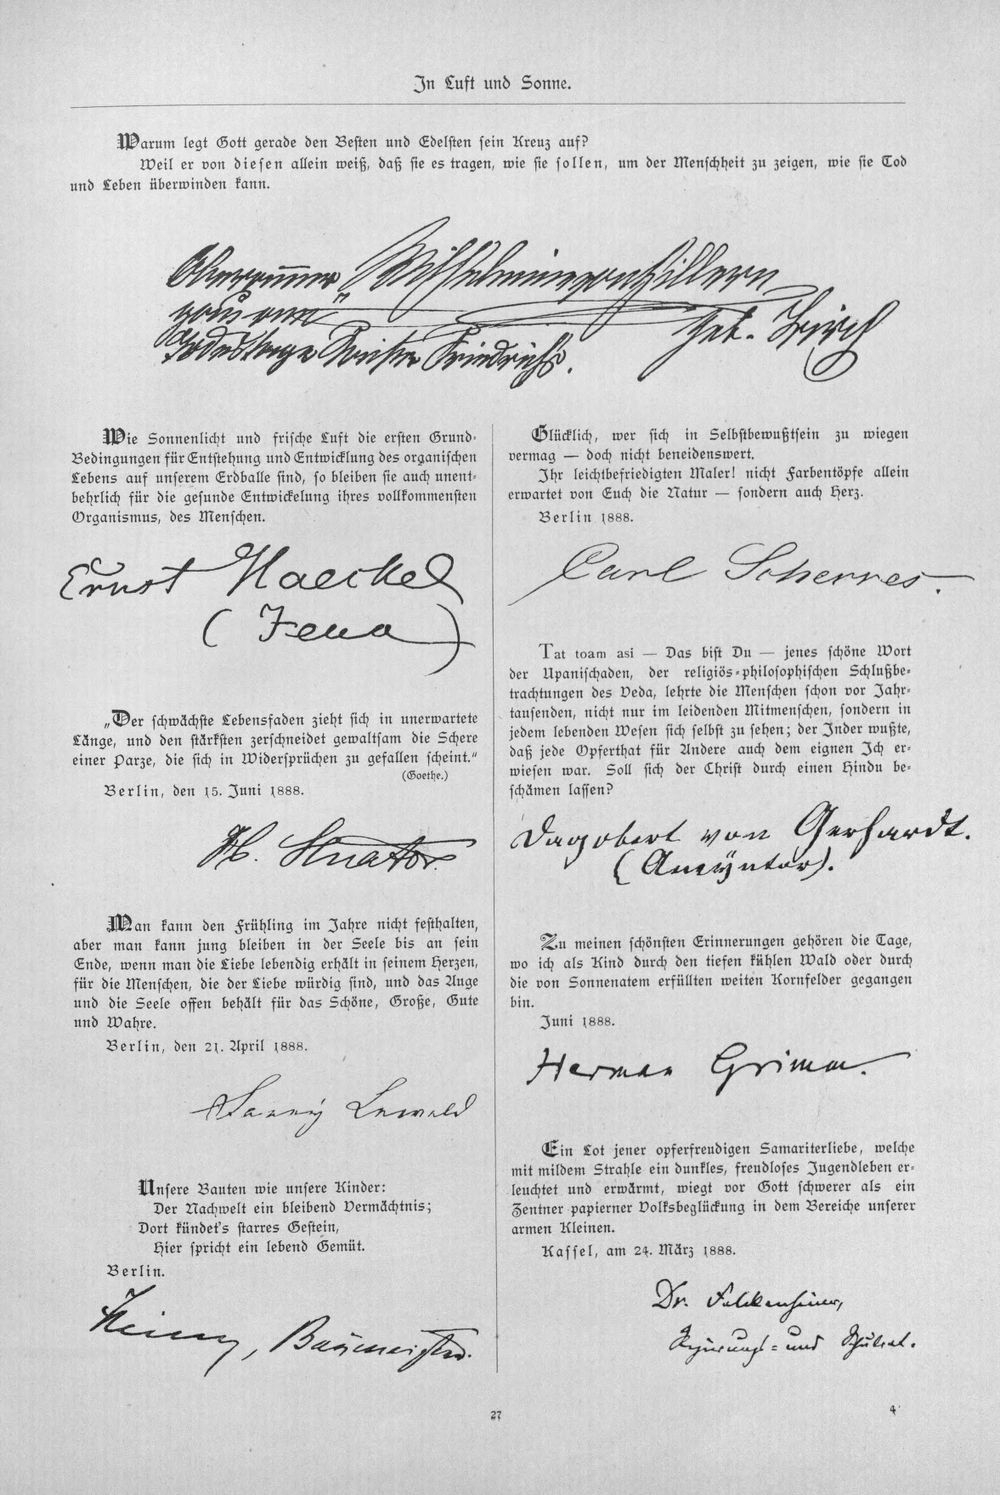 In Luft und Sonne.
Warum legt Gott gerade den Besten und Edelsten sein Kreuz auf?
Weil er von diesen allein weiß, daß sie es tragen, wie sie sollen, um der Menschheit zu zeigen, wie sie Tod
und Leben überwinden kann.
Oberammer Wilhelmine von Hillern
gau am
Todestage Kaiser Friedrichs. geb. Birch
Wie Sonnenlicht und frische Luft die ersten Grund-
Bedingungen für Entstehung und Entwicklung des organischen
Lebens auf unserem Erdballe sind, so bleiben sie auch unent-
behrlich für die gesunde Entwickelung ihres vollkommensten
Organismus, des Menschen.
Ernst Haeckel
(Jena)
„Der schwächste Lebensfaden zieht sich in unerwartete
Länge, und den stärksten zerschneidet gewaltsam die Schere
einer Parze, die sich in Widersprüchen zu gefallen scheint.“
(Goethe.)
Berlin, den 15. Juni 1888.
H. Senator.
Man kann den Frühling im Jahre nicht festhalten,
aber man kann jung bleiben in der Seele bis an sein
Ende, wenn man die Liebe lebendig erhält in seinem Herzen,
für die Menschen, die der Liebe würdig sind, und das Auge
und die Seele offen behält für das Schöne, Große, Gute
und Wahre.
Berlin, den 21. April 1888.
Fanny Lewald
Unsere Bauten wie unsere Kinder:
Der Nachwelt ein bleibend Vermächtnis;
Dort kündet's starres Gestein,
Hier spricht ein lebend Gemüt.
Berlin.
Baumeister.
Glücklich, wer sich in Selbstbewußtsein zu wiegen
vermag — doch nicht beneidenswert.
Ihr leichtbefriedigten Maler! nicht Farbentöpfe allein
erwartet von Euch die Natur — sondern auch Herz.
Berlin 1888.
Carl Scherres.
Tat toam asi — Das bist Du — jenes schöne Wort
der Upanischaden, der religiös-philosophischen Schlußbe-
trachtungen des Veda, lehrte die Menschen schon vor Jahr-
tausenden, nicht nur im leidenden Mitmenschen, sondern in
jedem lebenden Wesen sich selbst zu sehen; der Inder wußte,
daß jede Opferthat für Andere auch dem eignen Ich er-
wiesen war. Soll sich der Christ durch einen Hindu be-
schämen lassen?
Dagobert von Gerhardt.
(Amÿntor).
Zu meinen schönsten Erinnerungen gehören die Tage,
wo ich als Kind durch den tiefen kühlen Wald oder durch
die von Sonnenatem erfüllten weiten Kornfelder gegangen
bin.
Juni 1888.
Herman Grimm.
Ein Lot jener opferfreudigen Samariterliebe, welche
mit mildem Strahle ein dunkles, freudloses Jugendleben er-
leuchtet und erwärmt, wiegt vor Gott schwerer als ein
Zentner papierner Volksbeglückung in dem Bereiche unserer
armen Kleinen.
Kassel, am 24. März 1888.
Dr. Falckenheiner,
Regierungs- und Schulrat.
27
4